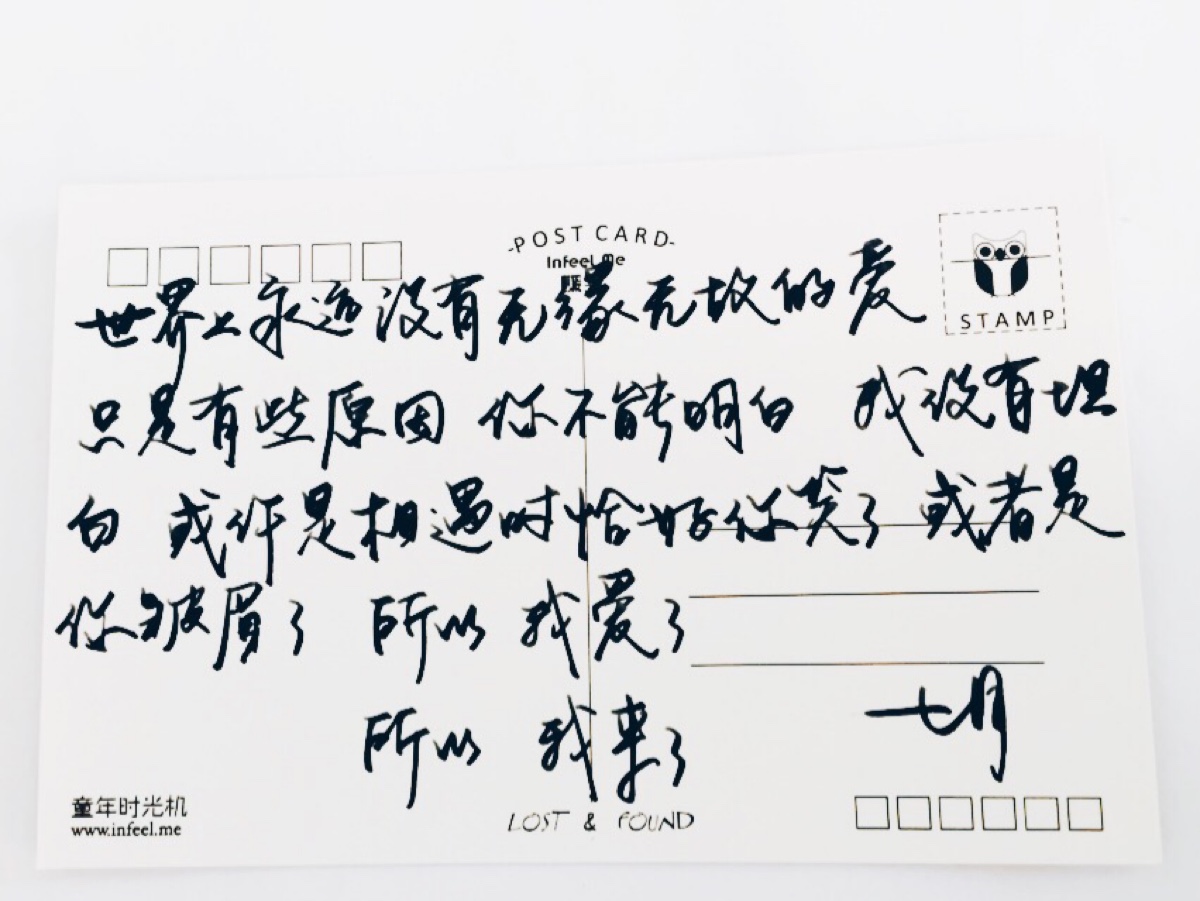 -POST CARD-
Infeel.Me
STAMP
世界上永远没有无缘无故的爱
只是有些原因 你不能明白 我没有坦
白 或许是相遇时恰好你笑了 或者是
你皱眉了 所以 我爱了
所以 我来了
七月
童年时光机
www.infeel.me
LOST & FOUND